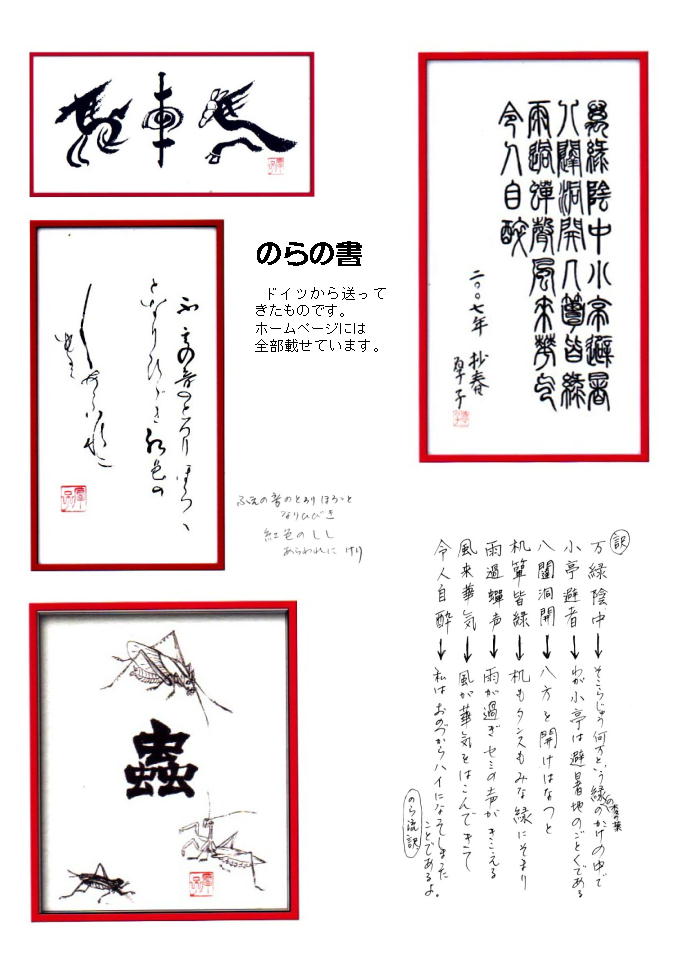 車
萬綠陰中小亭避暑
八闥洞開几簟皆綠
雨過蟬聲風來華气
令人自醉
二〇〇七年 抄春
のらの書
ドイツから送って
きたものです。
ホームページには
全部載せています。
ふえの音のとろりほろっと
なりひびき
紅色のしし
あらわれにけり
蟲
訳
万緑陰中→そこらじゅう何万という緑のかげの中で
小亭避者→わが小亭は避暑地のごとくである
八闥洞開→八方と開けはなつと
机簟皆緑→机もタンスもみな緑にそまり
雨過蟬声→雨が過ぎセミの声がきこえる
風来華気→風が華気をはこんできて
令人自酔→私はおのづからハイになってしまった
ことであるよ。
のら流訳